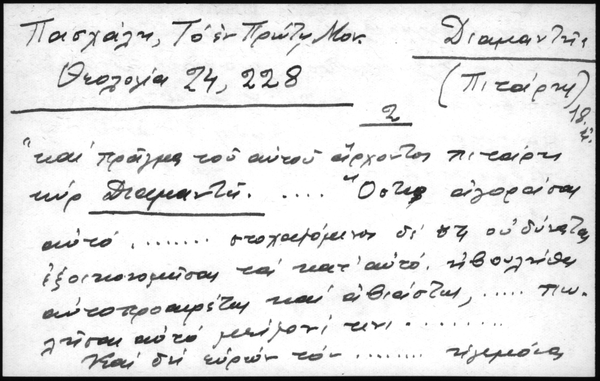 Πασχάλη, Τό ἐν Πρώτῃ Μον.
Θεολογία 24, 228
Διαμαντῆς
(Πιτάρης)
18. αἰ.
2
"καί πρᾶγμα τοῦ αὐτοῦ ἄρχοντος πιτάρη
κύρ Διαμαντῆ. .... "Ὅστις ἀγοράσας
αὐτό ....... στοχαζόμενος δέ ὅτι οὐ δύναται
ἐξοικονομῆσαι τά κατ' αὐτό, ἠβουλήθη
αὐτοπροαιρέτως καί ἀβιάστως, ..... πω-
λῆσαι αὐτό μείζονί τινι ........
Καί δή εὑρών τόν ....... ἡγεμόνα